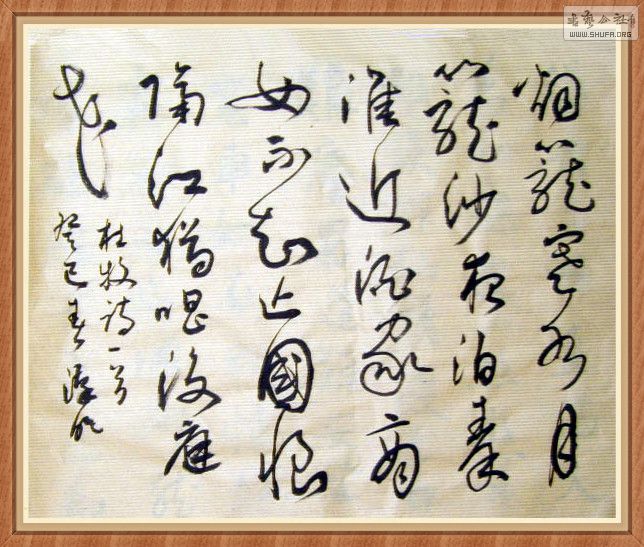 烟籠寒水月
籠沙夜泊秦
淮近酒家商
女不知亡國恨
隔江猶唱後庭
花
杜牧詩一首
癸巳春
書藝公社
WWW.SHUFA.ORG